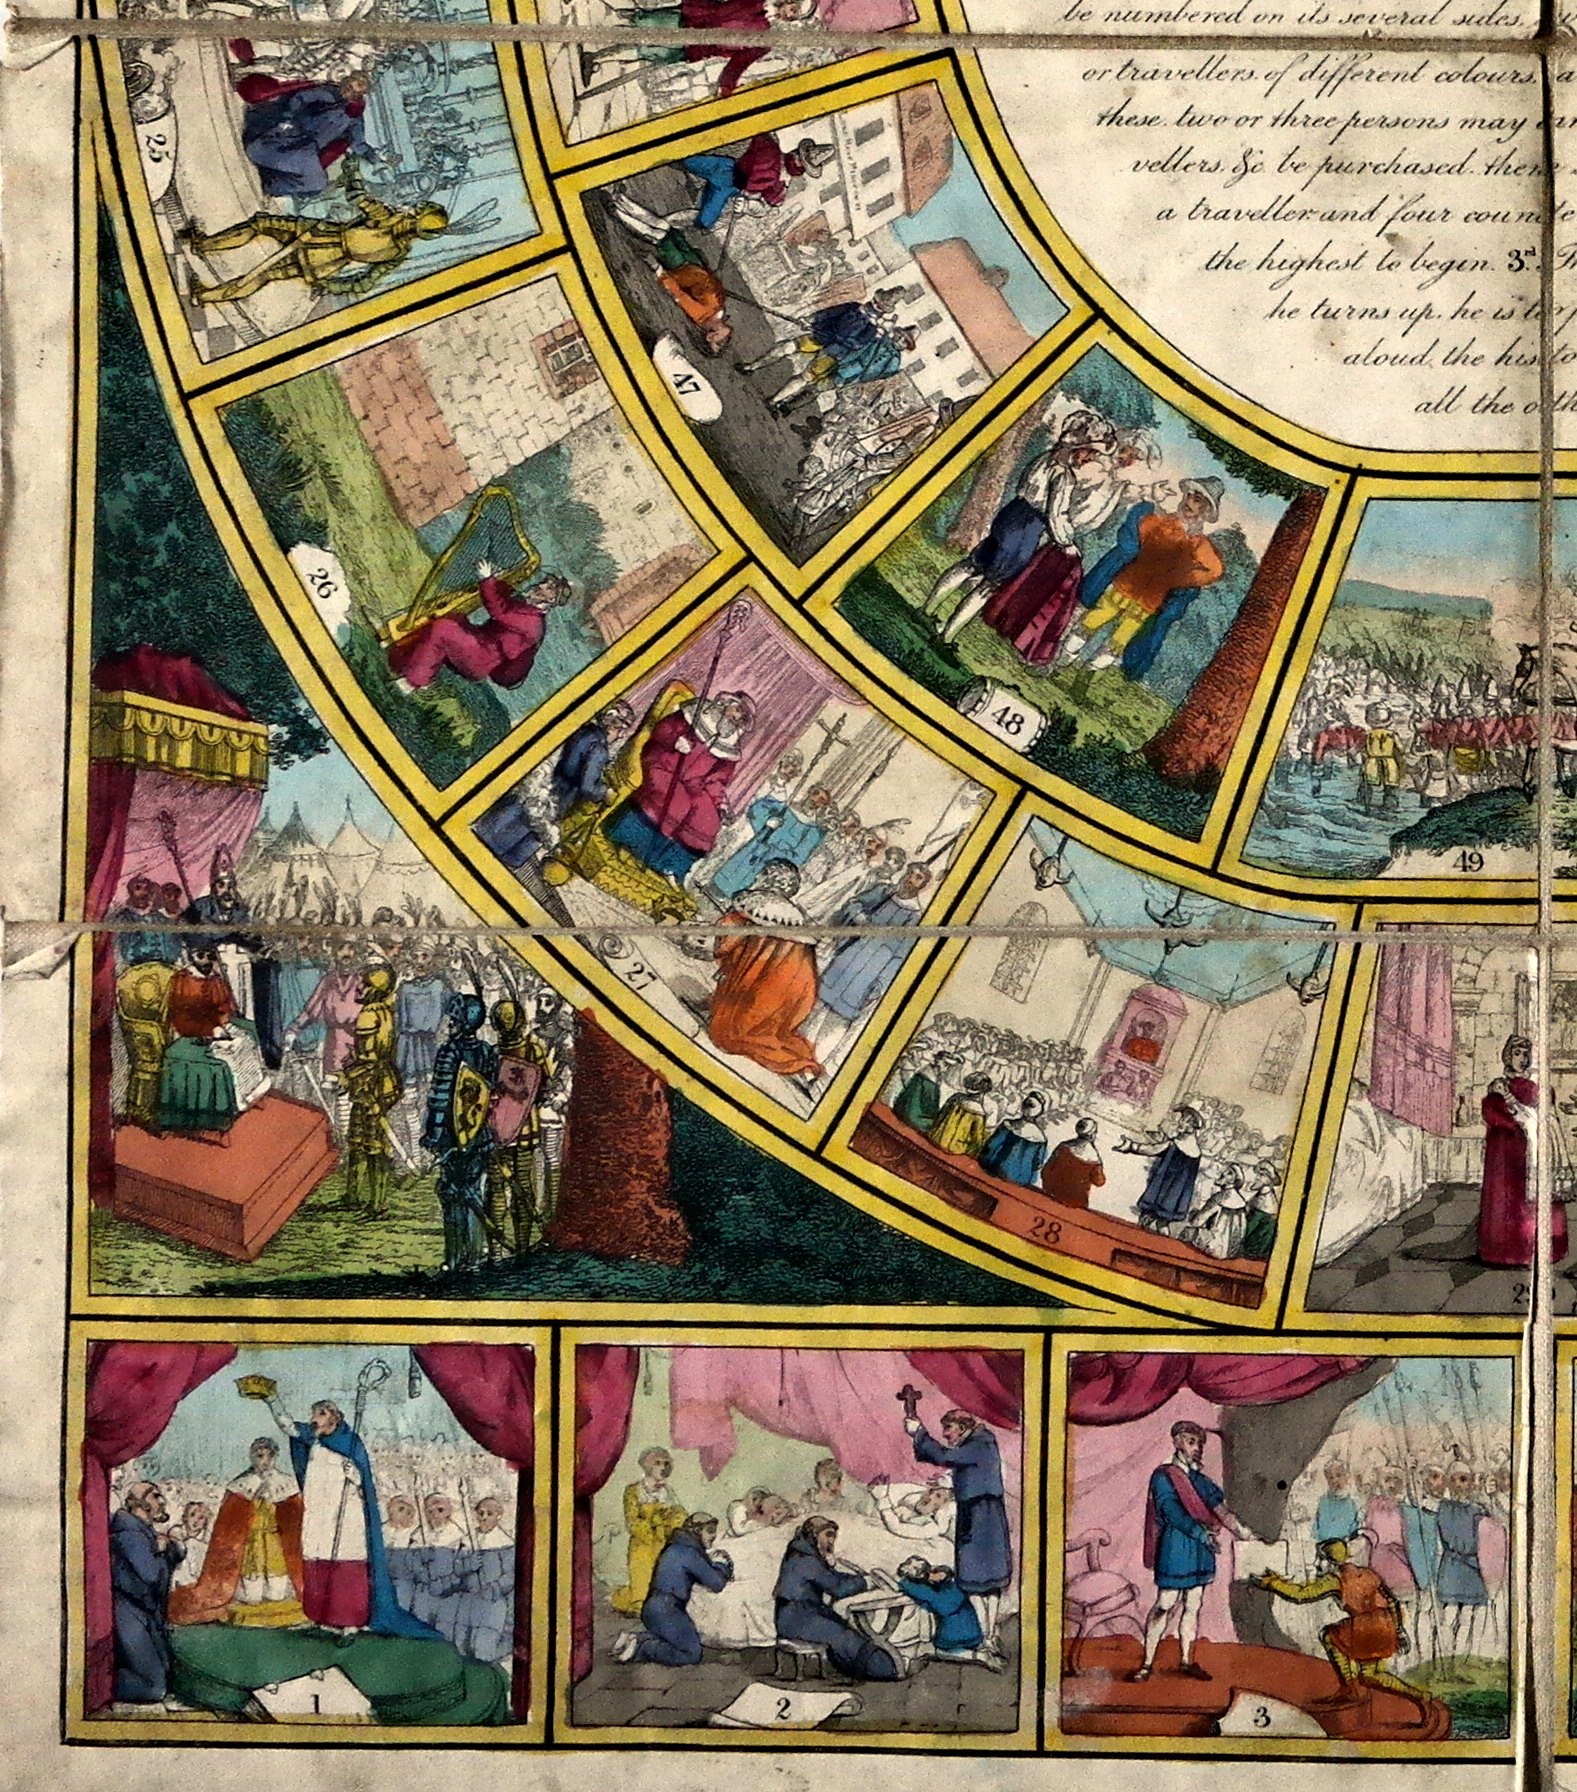 be numbered on its several sides,
or travellers, of different colours, a
these. two or three persons may
vellers. &c be purchased. there
a traveller and four
the highest to begin. 3rd.
he turns up. he is to
aloud, the
all the
25
47
26
48
49
27
28
29
1
2
3